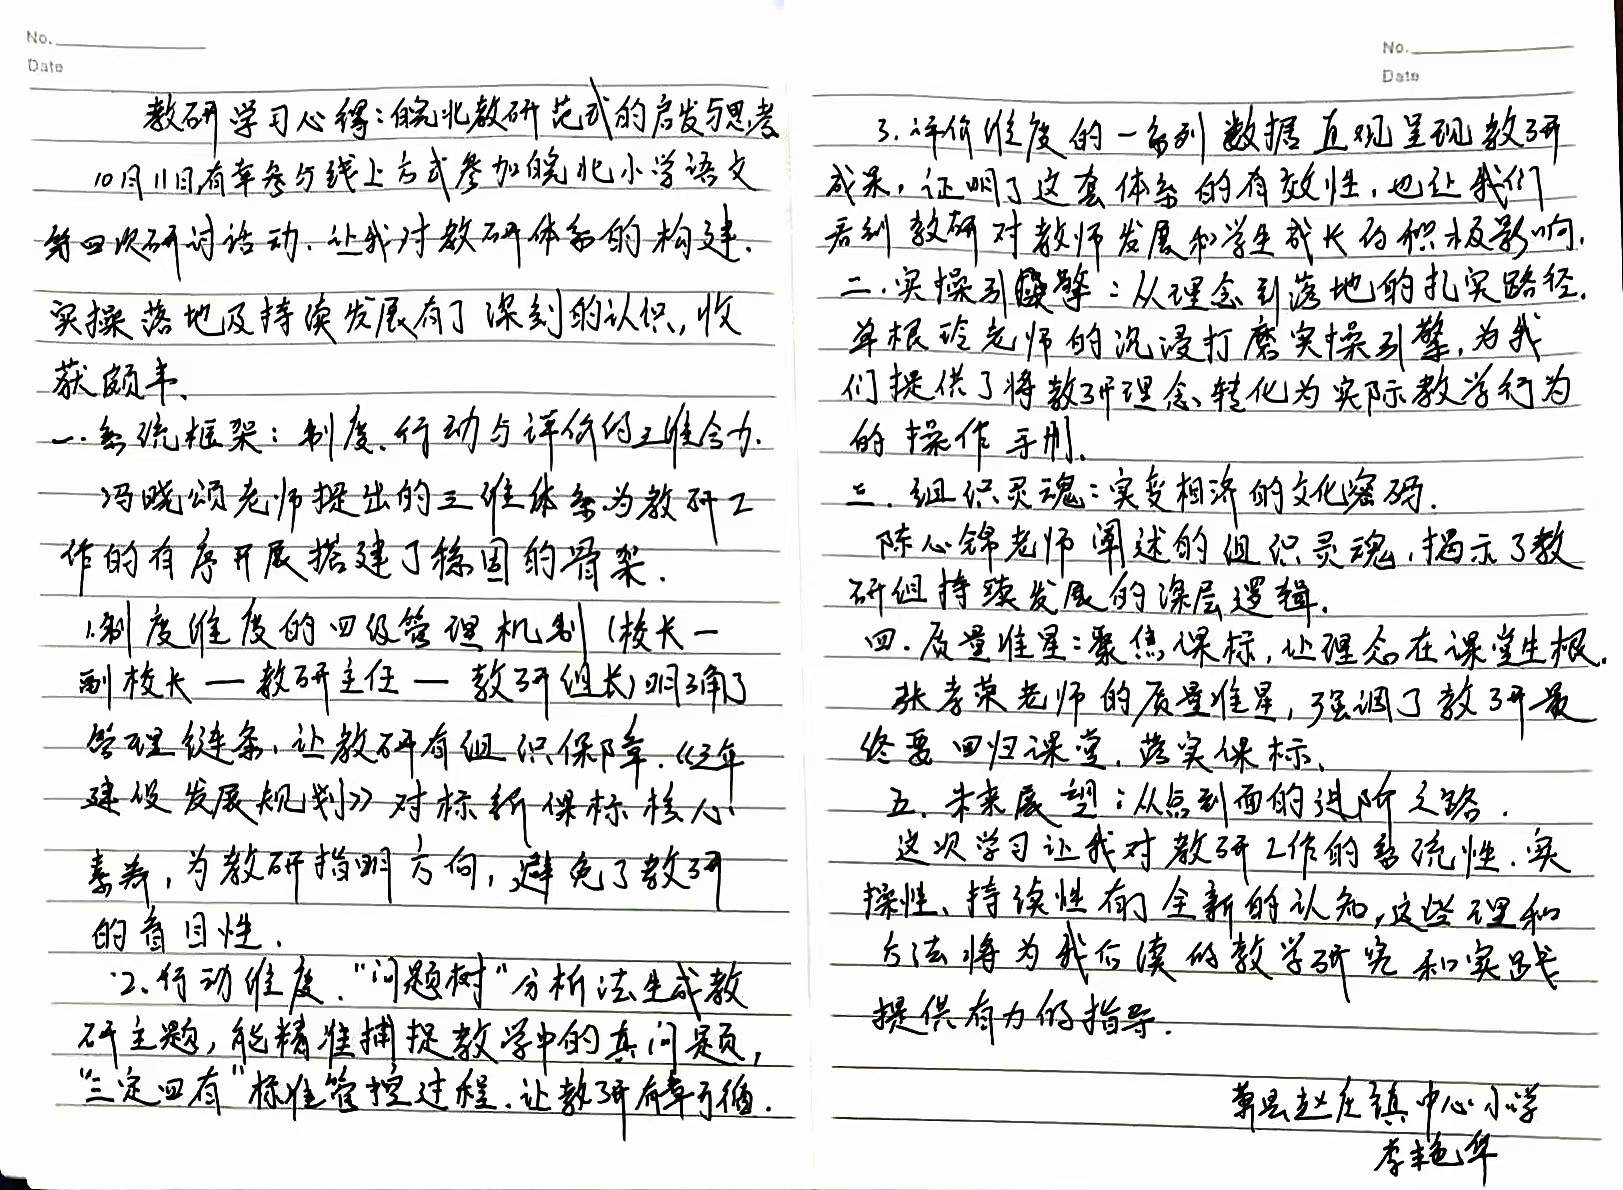 No.
Date
教研学习心得：皖北教研范式的启发与思考
10月11日，有幸参与线上方式参加皖北小学语文
第四次研讨活动、让我对教研体系的构建、
实操落地及持续发展有了深刻的认识，收
获颇丰、
一、系统框架：制度、行动与评价的三维合力、
冯晓颂老师提出的三维体系为教研工
作的有序开展搭建了稳固的骨架．
1.制度维度的四级管理机制（校长—
副校长—教研主任—教研组长）明确了
管理链条，让教研有组织保障．《3年
建设发展规划》对标新课标核心
素养，为教研指明方向，避免了教研
的盲目性．
2、行动维度．“问题树”分析法生成教
研主题，能精准捕捉教学中的真问题，
“三定四有”标准管控过程．让教研有章可循．
No.
Date
3．评价维度的一系列数据直观呈现教研
成果，证明了这套体系的有效性，也让我们
看到教研对教师发展和学生成长的积极影响．
二．实操引擎：从理念到落地的扎实路径．
单根玲老师的沉浸打磨实操引擎，为我
们提供了将教研理念转化为实际教学行为
的操作手册．
三．组织灵魂：实变相济的文化密码．
陈心锦老师阐述的组织灵魂，揭示了教
研组持续发展的深层逻辑．
四．质量准星：聚焦课标，让理念在课堂生根．
张孝荣老师的质量准星，强调了教研最
终要回归课堂．落实课标、
五．未来展望：从点到面的进阶之路．
这次学习让我对教研工作的系统性．实
操性、持续性有了全新的认知，这些理和
方法将为我后续的教学研究和实践
提供有力的指导．
萧县赵庄镇中心小学
李艳华